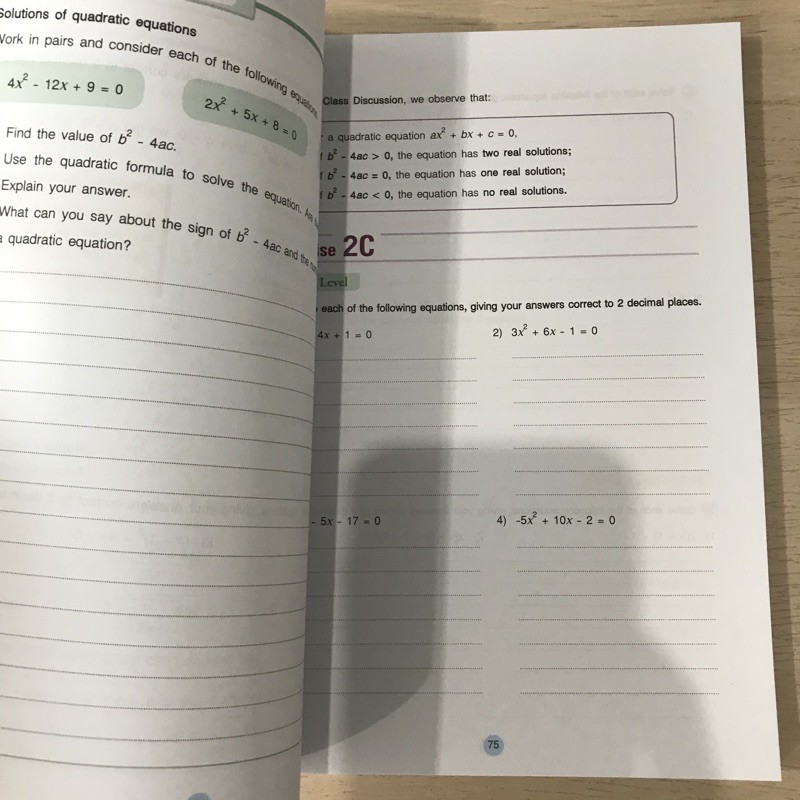 Solutions of quadratic equations
Work in pairs and consider each of the following equations.
4x² - 12x + 9 = 0
2x² + 5x + 8 = 0
Find the value of b² - 4ac.
Use the quadratic formula to solve the equation.
Explain your answer.
What can you say about the sign of b² - 4ac and the
a quadratic equation?
Class Discussion, we observe that:
a quadratic equation ax² + bx + c = 0,
b² - 4ac > 0, the equation has two real solutions;
b² - 4ac = 0, the equation has one real solution;
b² - 4ac < 0, the equation has no real solutions.
se 2C
Level
each of the following equations, giving your answers correct to 2 decimal places.
4x + 1 = 0
2) 3x² + 6x - 1 = 0
- 5x - 17 = 0
4) -5x² + 10x - 2 = 0
75